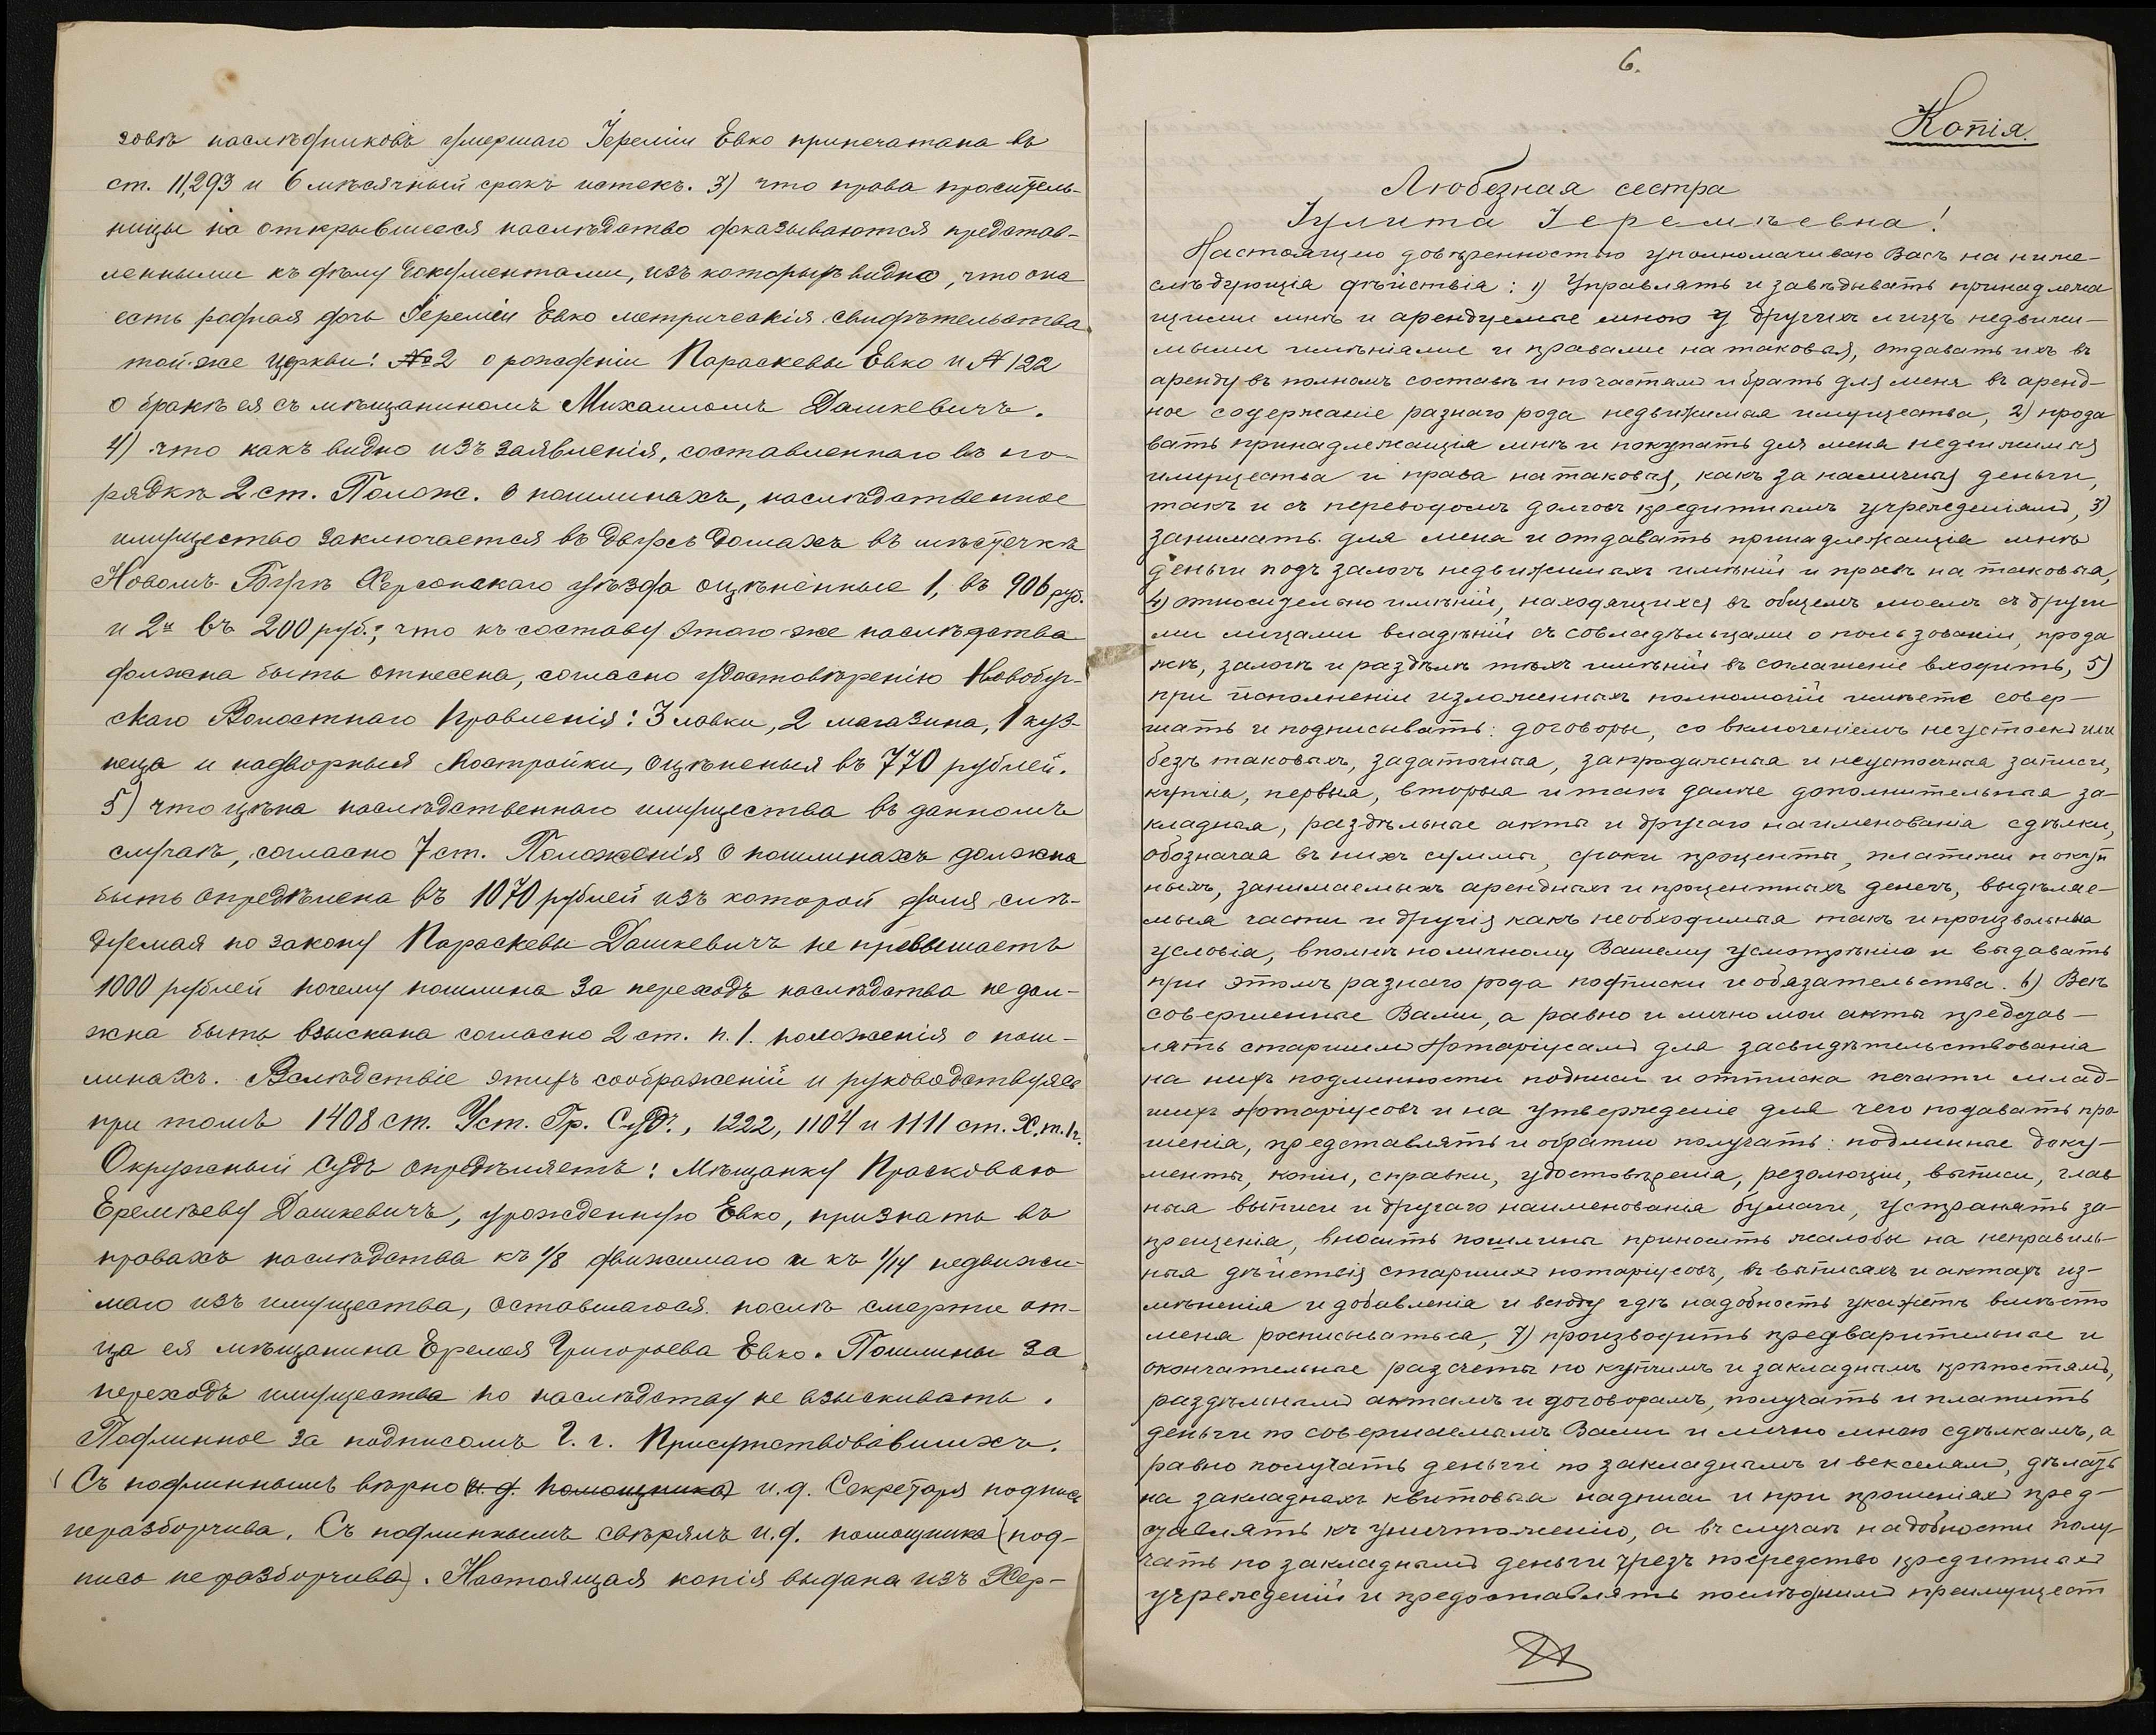 зовѣ наслѣдниковъ умершаго Іереміи Евко припечатана въ
ст. 11,293 и 6 мѣсячный срокъ истекъ. 3) что права проситель-
ницы на открывшееся наслѣдство доказываются представ-
ленными къ дѣлу документами, изъ которыхъ видно, что она
есть родная дочь Іереміи Евко метрическія свидѣтельства
той-же церкви: №2 о рожденіи Параскевы Евко и № 122
о бракѣ ея съ мѣщаниномъ Михаиломъ Дашкевичъ.
4) что какъ видно изъ заявленія, составленнаго въ по-
рядкѣ 2 ст. Полож. о пошлинахъ, наслѣдственное
имущество заключается въ двухъ домахъ въ мѣстечкѣ
Новомъ-Бугѣ Херсонскаго уѣзда оцѣненные 1, въ 906 руб.
и 2й въ 200 руб.; что къ составу этого-же наслѣдства
должна быть отнесена, согласно удостовѣренію Новобуг-
скаго Волостнаго Правленія: 3 лавки, 2 магазина, 1 куз-
неца и надворныя постройки, оцѣненыя въ 770 рублей.
5) что цѣна наслѣдственнаго имущества въ данномъ
случаѣ, согласно 7 ст. Положенія о пошлинахъ должна
быть опредѣлена въ 1070 рублей изъ которой доля слѣ-
дуемая по закону Параскевы Дашкевичъ не превышаетъ
1000 рублей почему пошлина за переходъ наслѣдства не дол-
жна быть взыскана согласно 2 ст. п. 1. положенія о пош-
линахъ. Вслѣдствіе этихъ соображеній и руководствуясь
при томъ 1408 ст. Уст. Гр. Суд., 1222, 1104 и 1111 ст. X. т. 1 ч.
Окружный Судъ опредѣляетъ: Мѣщанку Прасковью
Еремѣеву Дашкевичъ, урожденную Евко, признать въ
правахъ наслѣдства къ 1/8 движимаго и къ 1/14 недвижи-
маго изъ имущества, оставшагося послѣ смерти от-
ца ея мѣщанина Еремея Григорьева Евко. Пошлины за
переходъ имущества по наслѣдству не взыскивать.
Подлинное за подписомъ Г. г. Присутствовавшихъ.
Съ подлиннымъ вѣрно (и. д. помощника) и. д. Секретаря подпись
неразборчива. Съ подлиннымъ свѣрялъ и. д. помощника (под-
пись неразборчива). Настоящая копія выдана изъ Хер-
6.
Копія.
Любезная сестра
Іулита Іеремѣевна!
Настоящею довѣренностью уполномачиваю Васъ на ниже-
слѣдующія дѣйствія: 1) Управлять и завѣдывать принадлежа
щими мнѣ и арендуемые мною у другихъ лицъ недвижи-
мыми имѣніями и правами на таковыя, отдавать ихъ въ
аренду въ полномъ составѣ и по частямъ и брать для меня въ аренд-
ное содержаніе разнаго рода недвижимая имущества, 2) прода
вать принадлежащія мнѣ и покупать для меня недвижимыя
имущества и права на таковыя, какъ за наличныя деньги,
такъ и съ переводомъ долговъ кредитнымъ учрежденіямъ, 3)
занимать для меня и отдавать принадлежащія мнѣ
деньги подъ залогъ недвижимыхъ имѣній и правъ на таковыя,
4) относительно имѣній, находящихся въ общемъ моемъ съ други
ми лицами владѣніи съ совладѣльцами о пользованіи, прода
жѣ, залогѣ и раздѣлѣ тѣхъ имѣній въ соглашеніе входить, 5)
при исполненіи изложенныхъ полномочій имѣете совер-
шать и подписывать: договоры, со включеніемъ неустоекъ или
безъ таковыхъ, задаточныя, запродажныя и неустоечныя записи,
купчія, первыя, вторыя и такъ далѣе дополнительныя за-
кладныя, раздѣльные акты и другаго наименованія сдѣлки,
обозначая въ нихъ суммы, сроки проценты, платежи покуп
ныхъ, занимаемыхъ арендныхъ и процентныхъ денегъ, выдѣлае-
мыя части и другія какъ необходимыя такъ и произвольныя
условія, вполнѣ по личному Вашему усмотрѣнію и выдавать
при этомъ разнаго рода подписки и обязательства. 6) Всѣ
совершенные Вами, а равно и лично мои акты представ-
лять старшимъ Нотаріусамъ для засвидѣтельствованія
на нихъ подлинности подписи и оттиска печати млад-
шихъ Нотаріусовъ и на утвержденіе для чего подавать про
шенія, представлять и обратно получать: подлинные доку-
менты, копіи, справки, удостовѣренія, резолюціи, выписи, глав
ныя выписи и другаго наименованія бумаги, устранять за-
прещенія, вносить пошлины приносить жалобы на неправиль-
ныя дѣйствія старшихъ нотаріусовъ, въ выписяхъ и актахъ из-
мѣненія и добавленія и всюду гдѣ надобность укажетъ вмѣсто
меня росписываться, 7) производить предварительные и
окончательные разсчеты по купчимъ и закладнымъ крѣпостямъ,
раздѣльнымъ актамъ и договорамъ, получать и платить
деньги по совершаемымъ Вами и лично мною сдѣлкамъ, а
равно получать деньги по закладнымъ и векселямъ, дѣлать
на закладныхъ квитовыя надписи и при прошеніяхъ пред-
ставлять къ уничтоженію, а въ случаѣ надобности полу-
чать по закладнымъ деньги чрезъ посредство кредитныхъ
учрежденій и предоставлять послѣднимъ преимущест